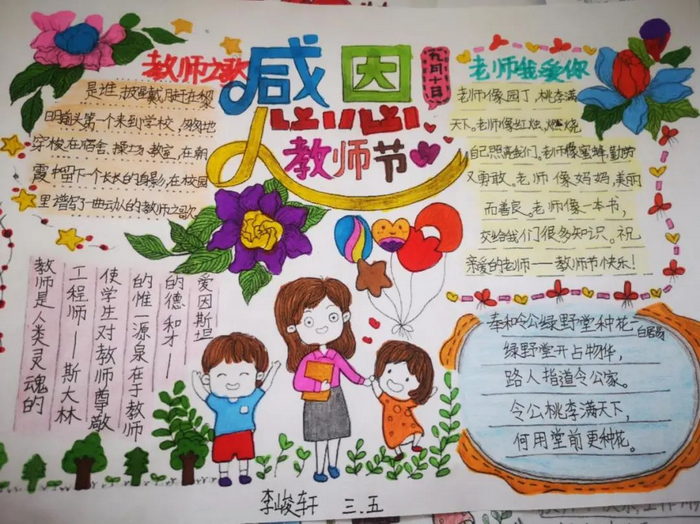 教师之歌
是谁,披星戴月赶在黎
明前头第一个来到学校,匆匆地
穿梭在宿舍、操场、教室,在朝
霞中留下一个长长的身影,在校园
里谱写了一曲动人的教师之歌
感恩
教师节
九月十日
老师我爱你
老师像园丁,桃李满
天下。老师像红烛,燃烧
自己照亮我们。老师像蜜蜂勤劳
又勇敢。老师像妈妈,美丽
而善良。老师像一本书,
交给我们很多知识。祝
亲爱的老师——教师节快乐!
爱因斯坦
的德和才——
的惟一源泉在于教师
使学生对教师尊敬
工程师——斯大林
教师是人类灵魂的
奉和令公绿野堂种花 白居易
绿野堂开占物华,
路人指道令公家。
令公桃李满天下,
何用堂前更种花。
李峻轩 三.五